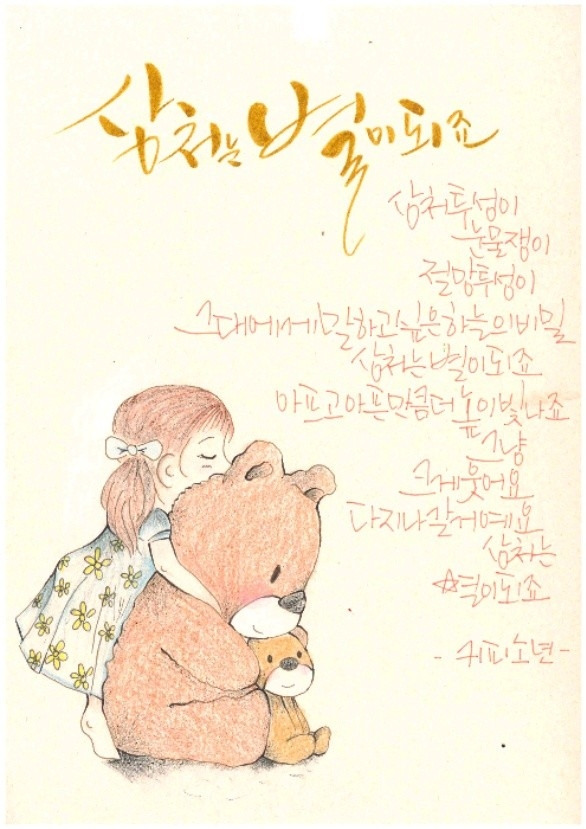 상처는 별이 되죠
상처투성이
눈물쟁이
절망투성이
그대에게 말하고 싶은 하늘의 비밀
상처는 별이 되죠
아프고 아픈만큼 더 높이 빛나죠
그냥
크게 웃어요
다 지나갈거예요
상처는
☆별이 되죠
- 커피소년 -